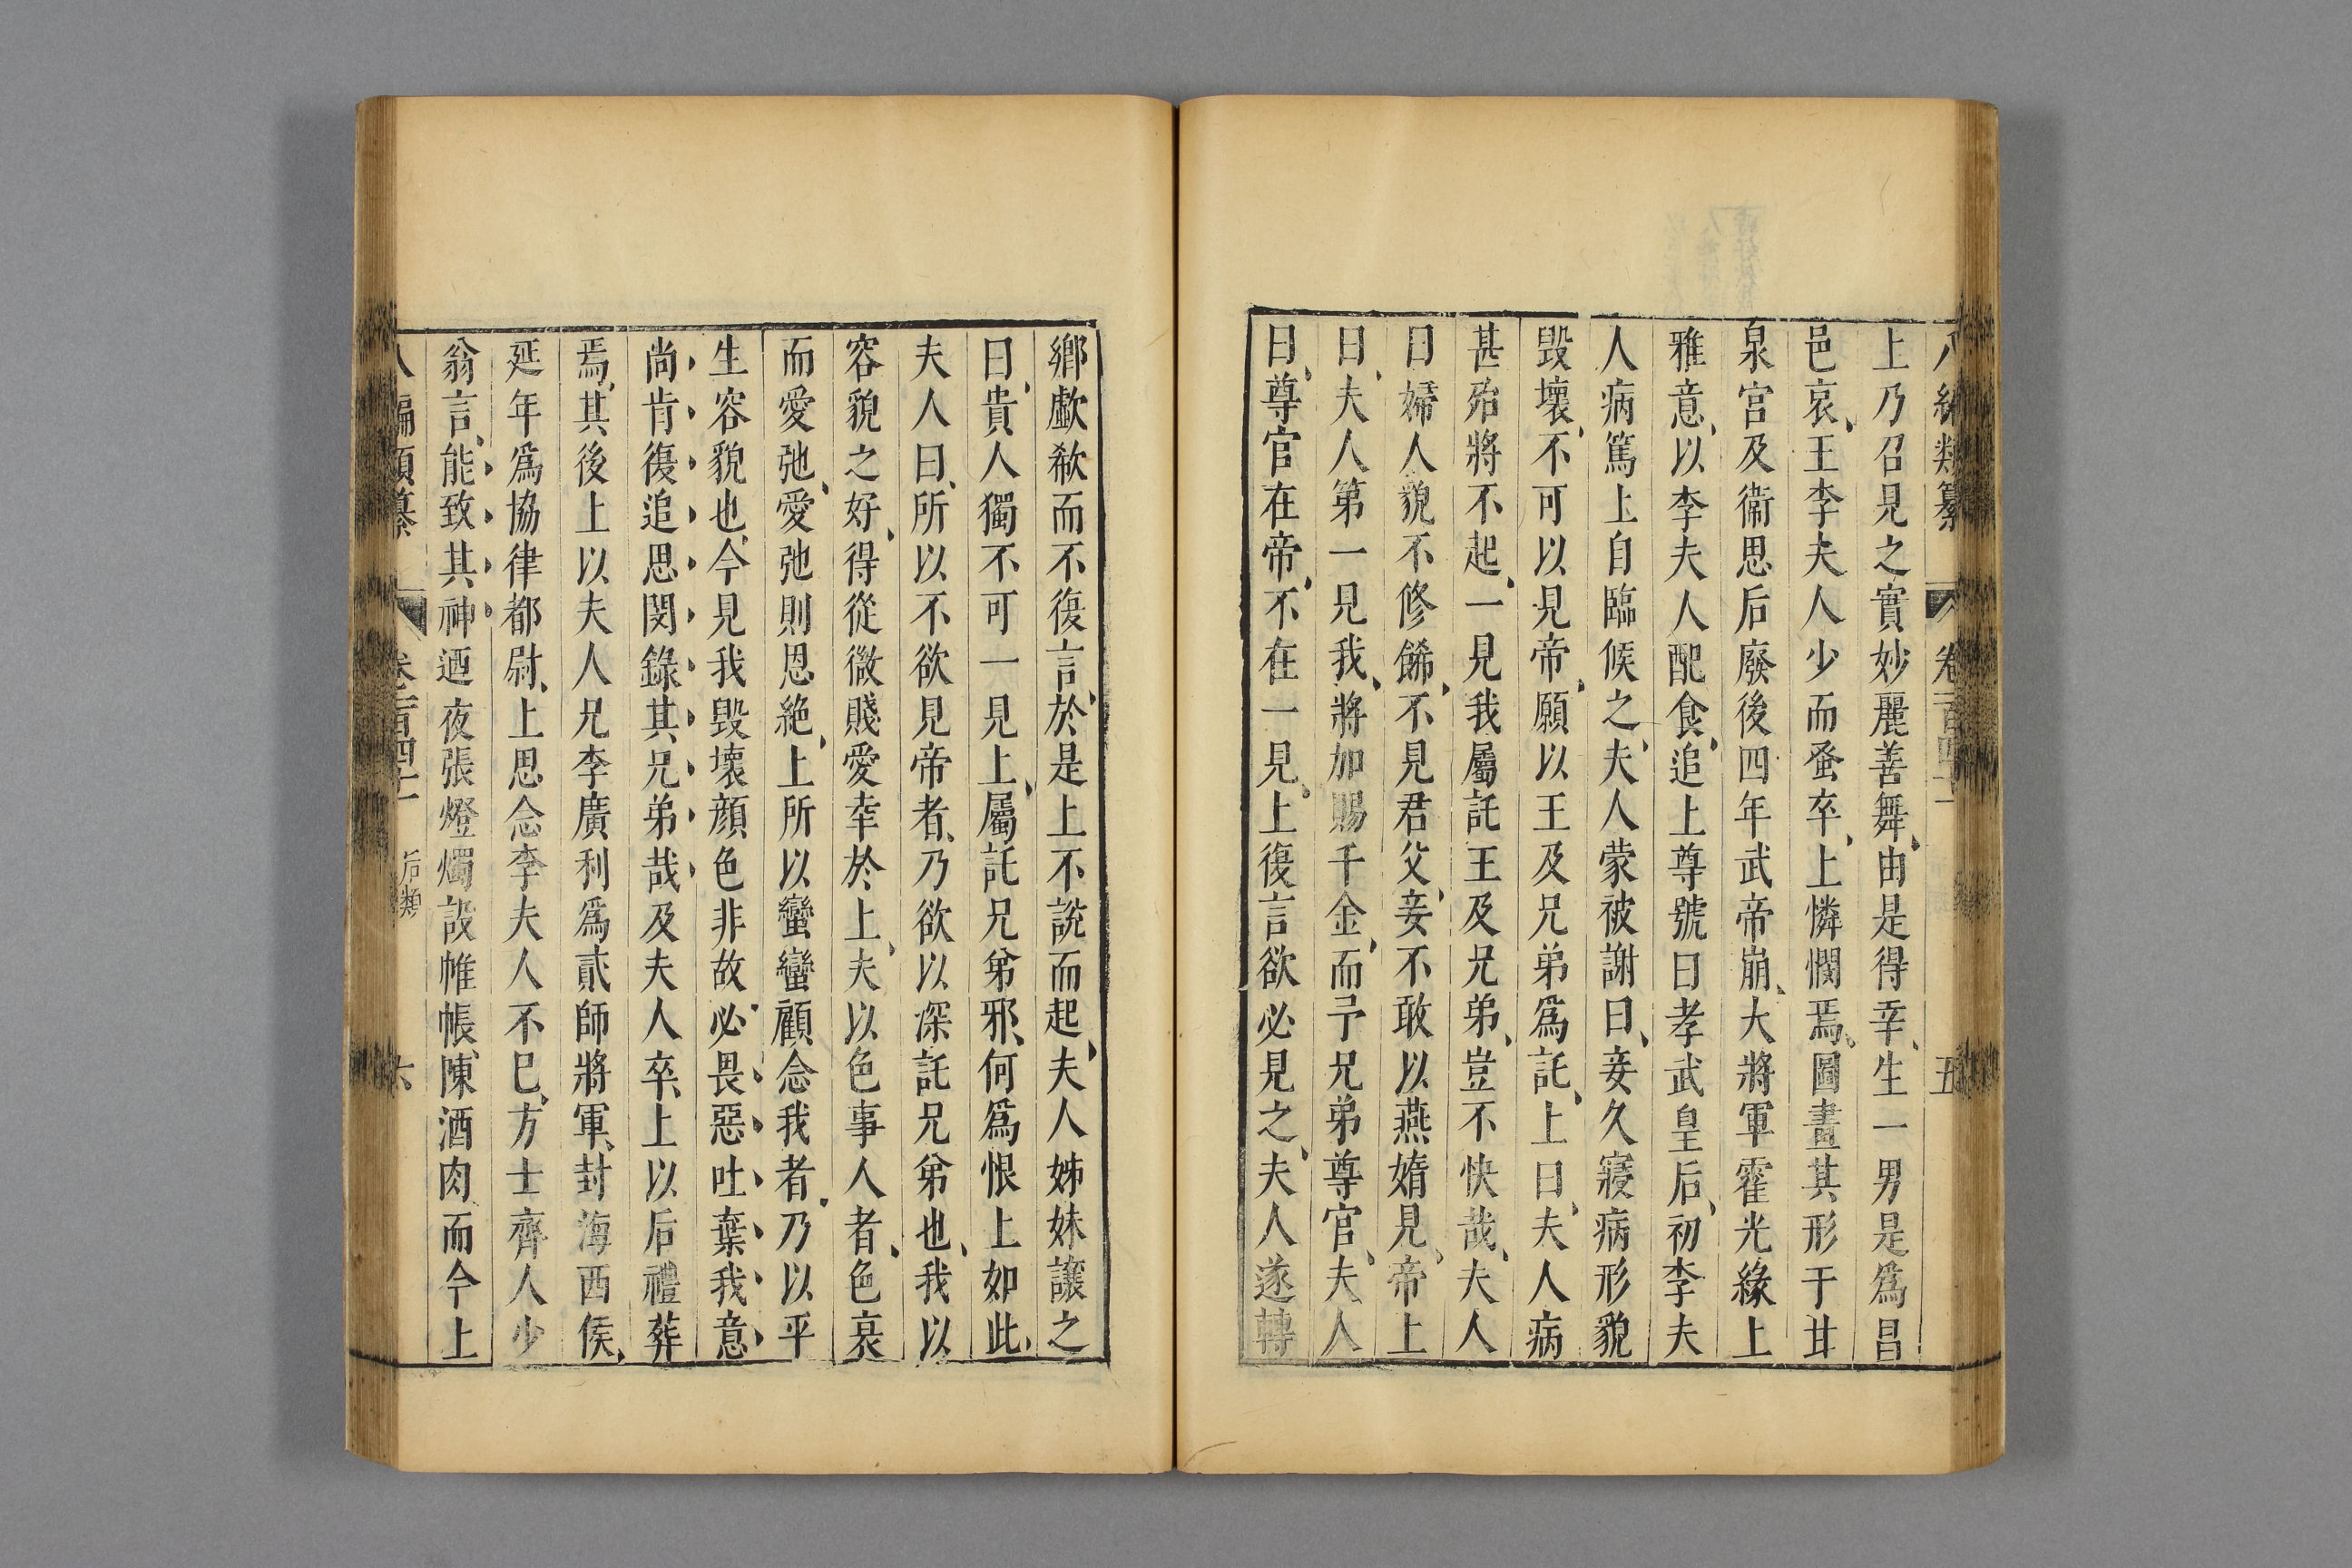 八編類纂 卷二百四十一 五
上乃召見之實妙麗善舞由是得幸生一男是爲昌
邑哀王李夫人少而蚤卒上憐憫焉圖畫其形于甘
泉宮及衞思后廢後四年武帝崩大將軍霍光緣上
雅意以李夫人配食追上尊號曰孝武皇后初李夫
人病篤上自臨候之夫人蒙被謝曰妾久寢病形貌
毀壞不可以見帝願以王及兄弟爲託上曰夫人病
甚殆將不起一見我屬託王及兄弟豈不快哉夫人
曰婦人貌不修餙不見君父妾不敢以燕媠見帝上
曰夫人第一見我將加賜千金而予兄弟尊官夫人
曰尊官在帝不在一見上復言欲必見之夫人遂轉
鄉歔欷而不復言於是上不說而起夫人姊妹讓之
曰貴人獨不可一見上屬託兄弟邪何爲恨上如此
夫人曰所以不欲見帝者乃欲以深託兄弟也我以
容貌之好得從微賤愛幸於上夫以色事人者色衰
而愛弛愛弛則恩絶上所以蠻蠻顧念我者乃以平
生容貌也今見我毀壞顏色非故必畏惡吐棄我意
尚肯復追思閔錄其兄弟哉及夫人卒上以后禮葬
焉其後上以夫人兄李廣利爲貳師將軍封海西侯
延年爲協律都尉上思念李夫人不巳方士齊人少
翁言能致其神迺夜張燈燭設帷帳陳酒肉而令上
八編類纂 卷二百四十一 后類 六